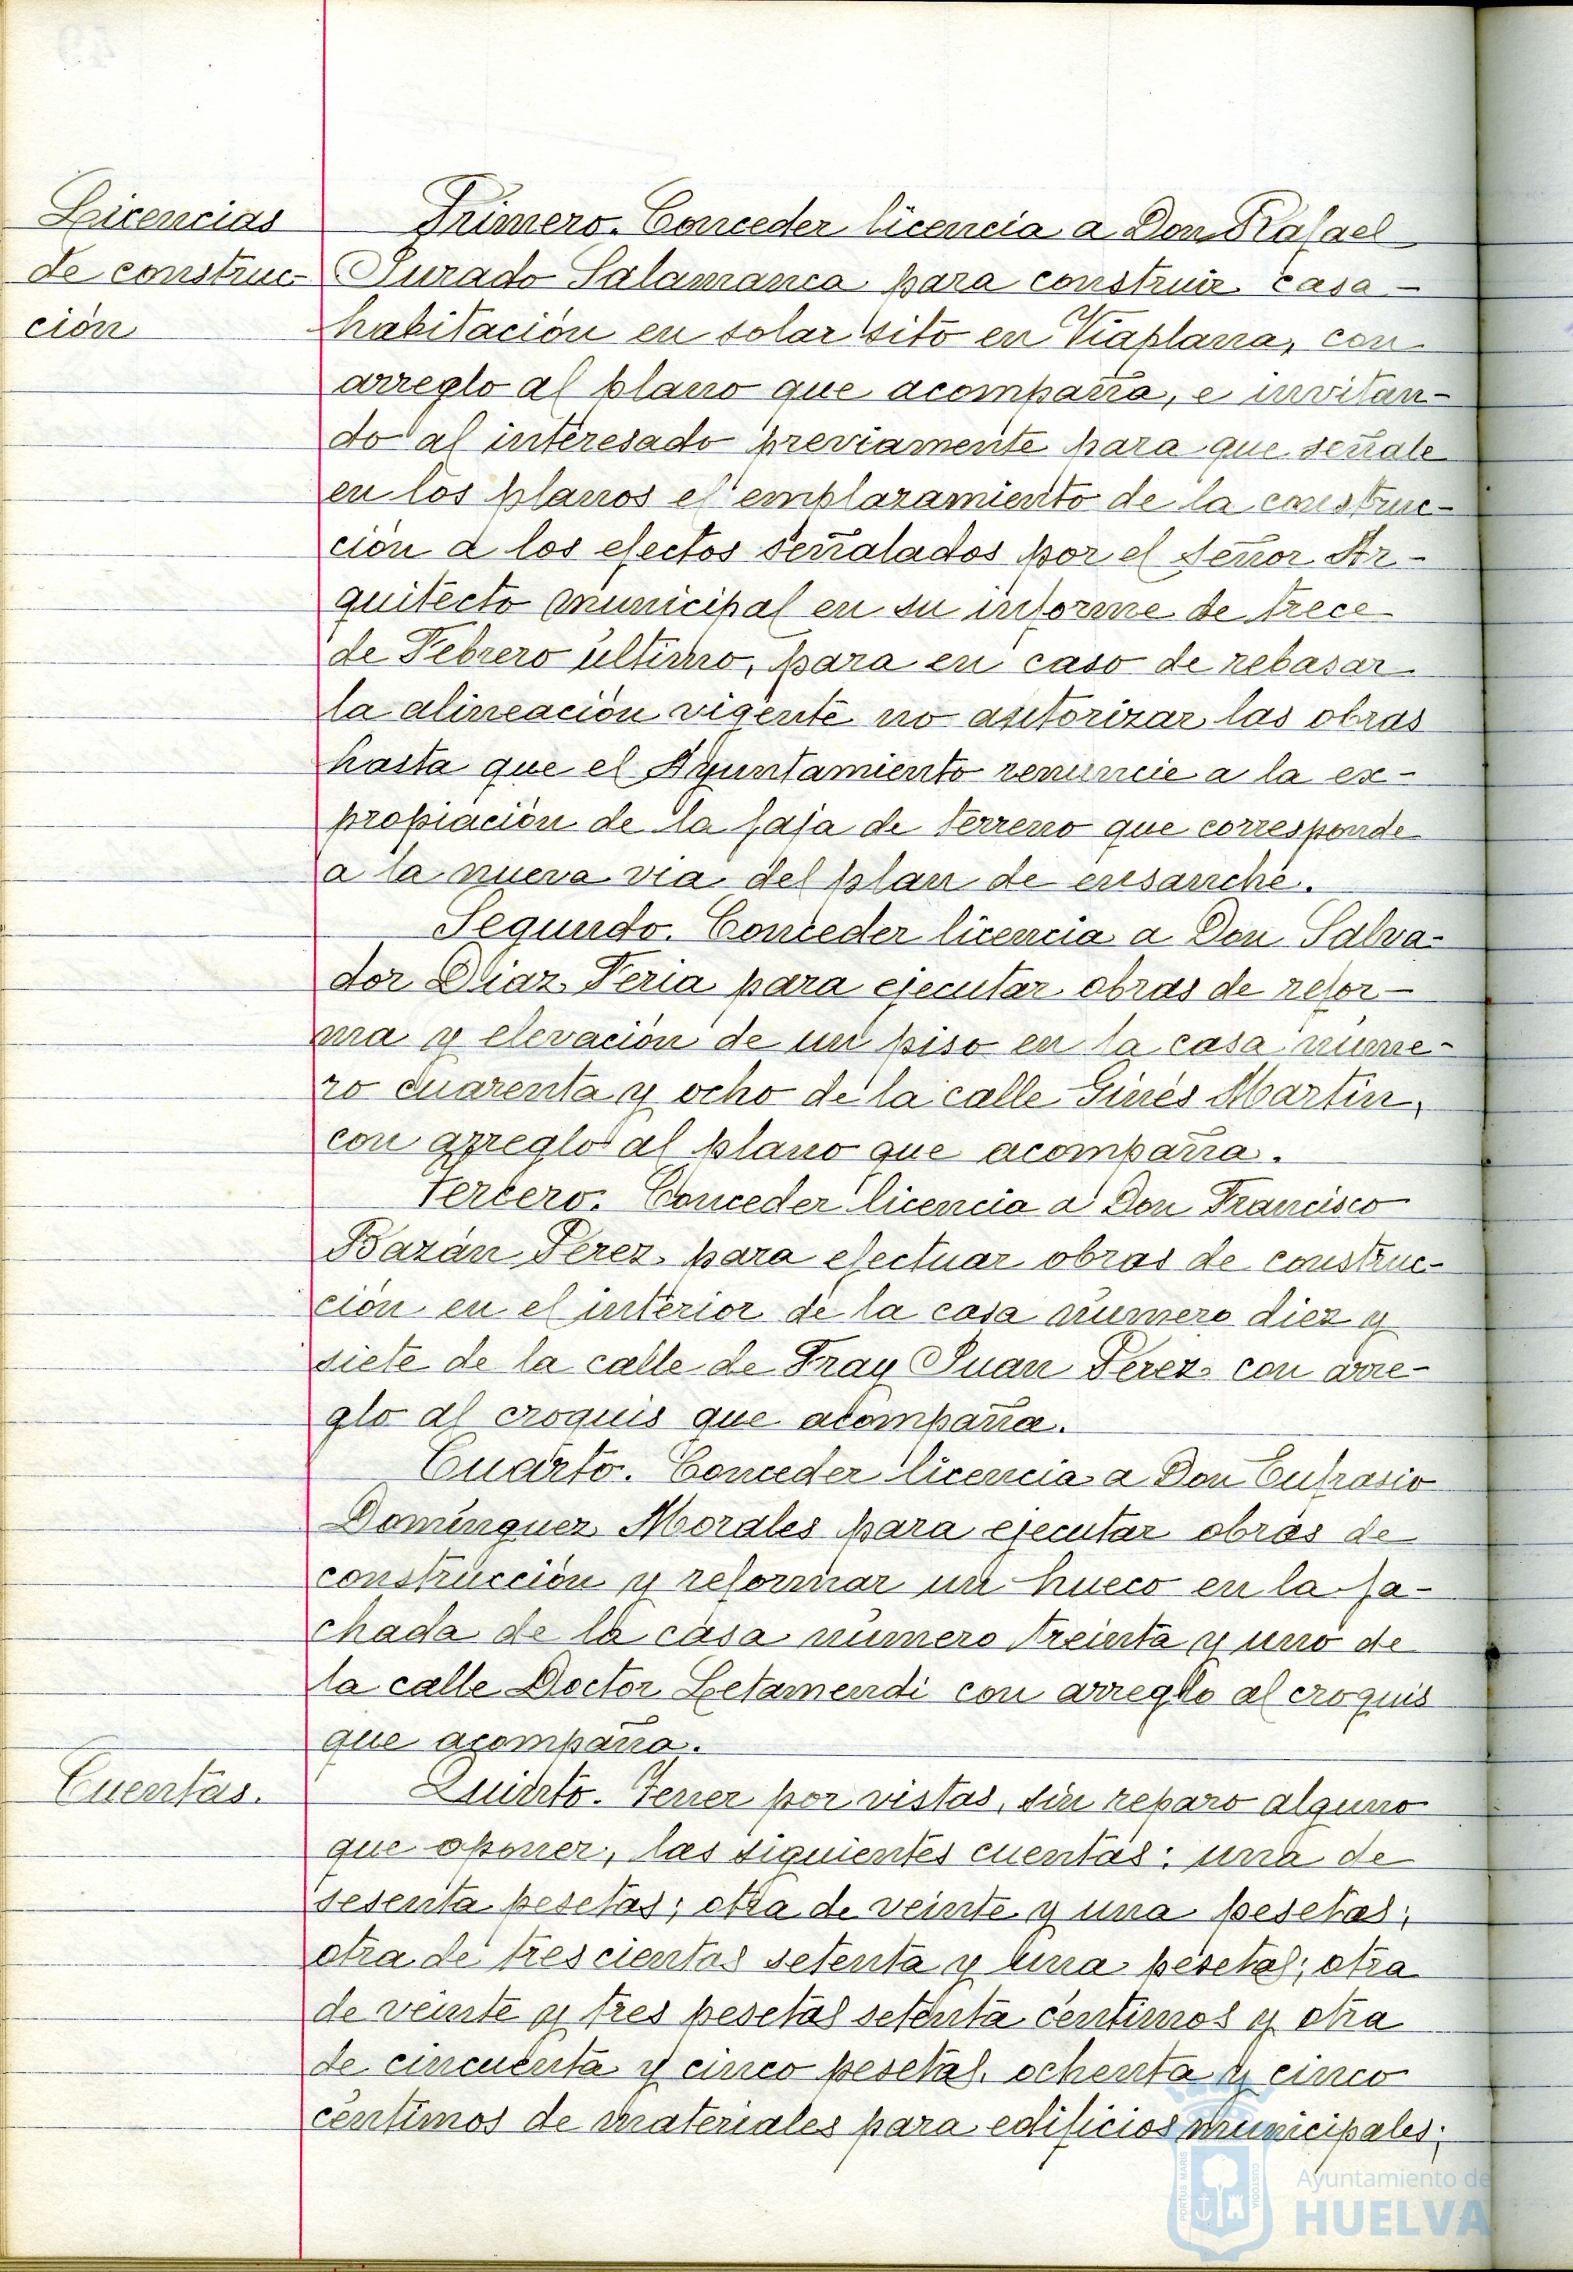 Licencias
de construc-
ción
Primero. Conceder licencia a Don Rafael
Jurado Salamanca para construir casa-
habitación en solar sito en Viaplana, con
arreglo al plano que acompaña, e invitan-
do al interesado previamente para que señale
en los planos el emplazamiento de la construc-
ción a los efectos señalados por el señor Ar-
quitecto municipal en su informe de trece
de Febrero último, para en caso de rebasar
la alineación vigente no autorizar las obras
hasta que el Ayuntamiento renuncie a la ex-
propiación de la faja de terreno que corresponde
a la nueva via del plan de ensanche.
Segundo. Conceder licencia a Don Salva-
dor Diaz Feria para ejecutar obras de refor-
ma y elevación de un piso en la casa núme-
ro cuarenta y ocho de la calle Ginés Martín,
con arreglo al plano que acompaña.
Tercero. Conceder licencia a Don Francisco
Bazán Pérez para efectuar obras de construc-
ción en el interior de la casa número diez y
siete de la calle de Fray Juan Pérez con arre-
glo al croquis que acompaña.
Cuarto. Conceder licencia a Don Eufrasio
Domínguez Morales para ejecutar obras de
construcción y reformar un hueco en la fa-
chada de la casa número treinta y uno de
la calle Doctor Letamendi con arreglo al croquis
que acompaña.
Cuentas.
Quinto. Tener por vistas, sin reparo alguno
que oponer, las siguientes cuentas: una de
sesenta pesetas; otra de veinte y una pesetas;
otra de trescientas setenta y una pesetas; otra
de veinte y tres pesetas setenta céntimos y otra
de cincuenta y cinco pesetas ochenta y cinco
céntimos de materiales para edificios municipales;
PORTUS MARIS
CUSTODIA
Ayuntamiento de
HUELVA
49